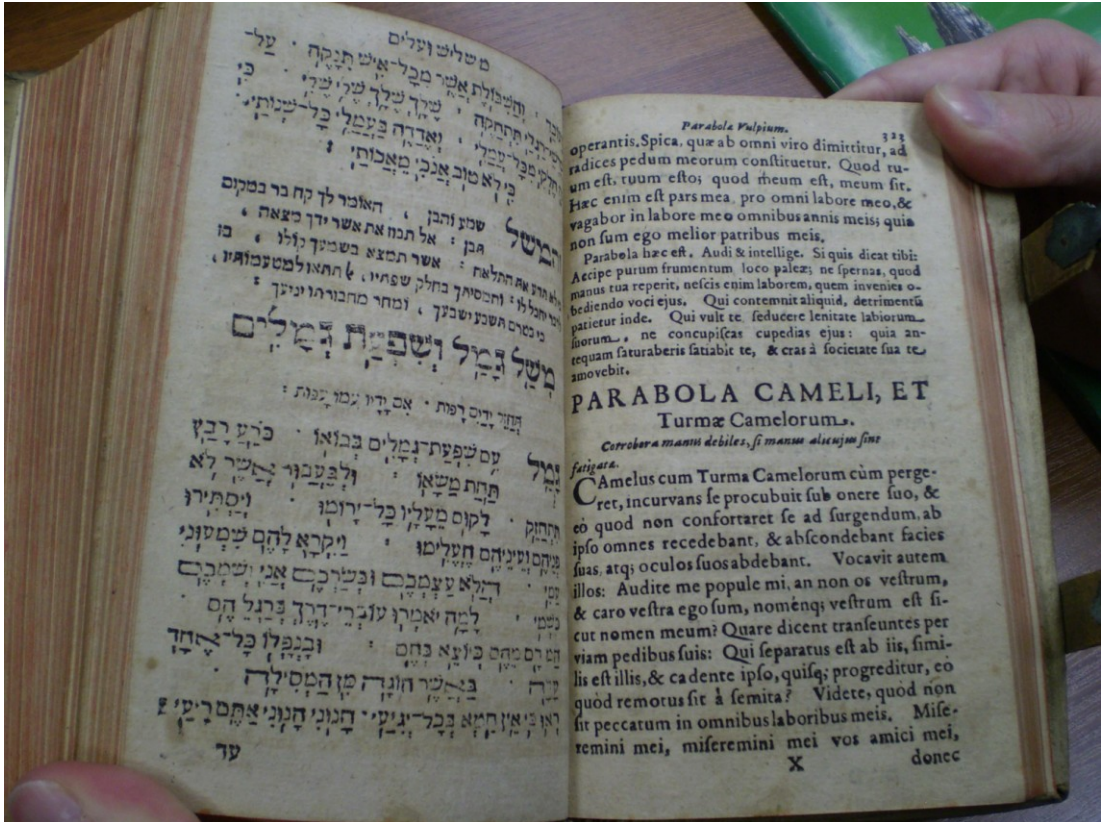 משלי שועלים
והשבולת אשר מכל־איש תנקה · על־
שלך שלך שלי שלי · כי
חלקי מכל עמלי · ואדדה בעמלי כל־שנותי
כי לא טוב אנכי מאבותי
והמשל שמע והבן · האומר לך קח בר במקום
תבן : אל תבוז את אשר ידך מצאה
אשר תמצא בשמעך קולו · בז
כי בטרם תשבע ישבעך · ומחר מחברתו יניעך :
מְשַׁל גָּמָל וְשִׁפְעַת גְּמַלִּים
חזק ידים רפות · אם ידיו עמו עפות :
גמל עם שפעת־גמלים בבואו · כרע רבץ
תחת משאו : ולבעבור אשר לא
התחזק · לקום מעליו כל־ירומו · ויסתירו
פניהם ועיניהם העלימו : ויקרא להם שמעוני
עמי · הלא עצמכם ובשרכם אני ושמכם
כשמי · למה יאמרו עוברי־דרך ברגל הם ·
ובנפלו כל־אחד
כאשר הוגה מן המסילה
ראו כי אין חמא בכל־יגיעי · חנוני חנוני אתם ריעי :
עד
Parabola Vulpium. 323
operantis, Spica, quæ ab omni viro dimittitur, ad
radices pedum meorum conſtituetur. Quod tu-
um eſt, tuum eſto; quod meum eſt, meum ſit.
Hæc enim eſt pars mea pro omni labore meo, &
vagabor in labore meo omnibus annis meis; quia
non ſum ego melior patribus meis.
Parabola hæc eſt. Audi & intellige. Si quis dicat tibi:
Accipe purum frumentum loco paleæ; ne ſpernas, quod
manus tua reperit, neſcis enim laborem, quem invenies o-
bediendo voci ejus. Qui contemnit aliquid, detrimentū
patietur inde. Qui vult te ſeducere lenitate labiorum
ſuorum, ne concupiſcas cupedias ejus: quia an-
tequam ſaturaberis ſatiabit te, & cras à ſocietate ſua te
amovebit.
PARABOLA CAMELI, ET
Turmæ Camelorum.
Corrobora manus debiles, ſi manus alicujus ſint
fatigatæ.
CAmelus cum Turma Camelorum cùm perge-
ret, incurvans ſe procubuit ſub onere ſuo, &
eò quod non confortaret ſe ad ſurgendum, ab
ipſo omnes recedebant, & abſcondebant facies
ſuas, atq; oculos ſuos abdebant. Vocavit autem
illos: Audite me popule mi, an non os veſtrum,
& caro veſtra ego ſum, nomenq; veſtrum eſt ſi-
cut nomen meum? Quare dicent tranſeuntes per
viam pedibus ſuis: Qui ſeparatus eſt ab iis, ſimi-
lis eſt illis, & cadente ipſo, quiſq; progreditur, eò
quòd remotus ſit à ſemita? Videte, quòd non
ſit peccatum in omnibus laboribus meis. Miſe-
remini mei, miſeremini mei vos amici mei,
X donec